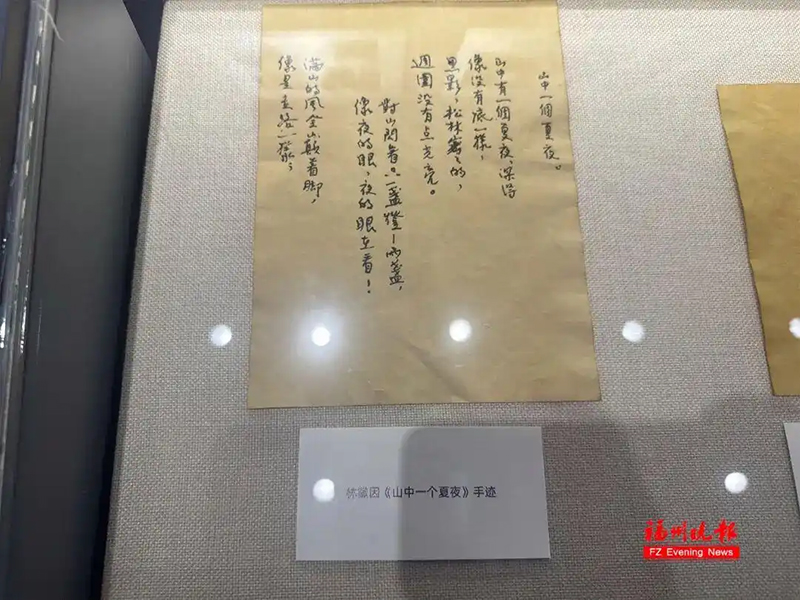 山中一個夏夜。
山中有一個夏夜，深得
像沒有底一樣，
黑影，松林密々的，
週圍沒有点光亮。
對山閃着只一盞燈—兩盞，
像夜的眼，夜的眼在看！
滿山的風全躡着脚，
像是走路一樣，
林徽因《山中一个夏夜》手迹
福州晚报
FZ Evening News